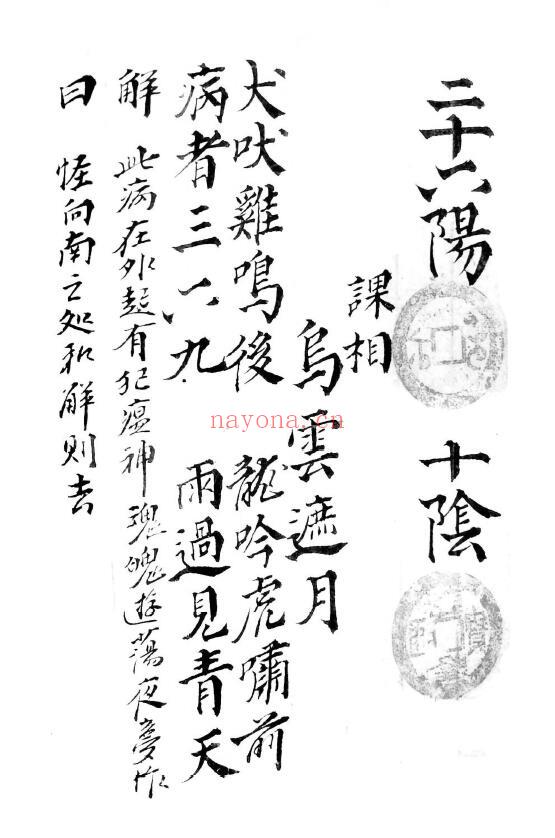 二十六陽 十陰
課相
烏雲遮月
犬吠雞鳴後 龍吟虎嘯前
病者三六九 雨過見青天
解 此病在外起有犯瘟神魂魄遊蕩夜夢作
曰 怪向南之処和解則去
nayona.cn